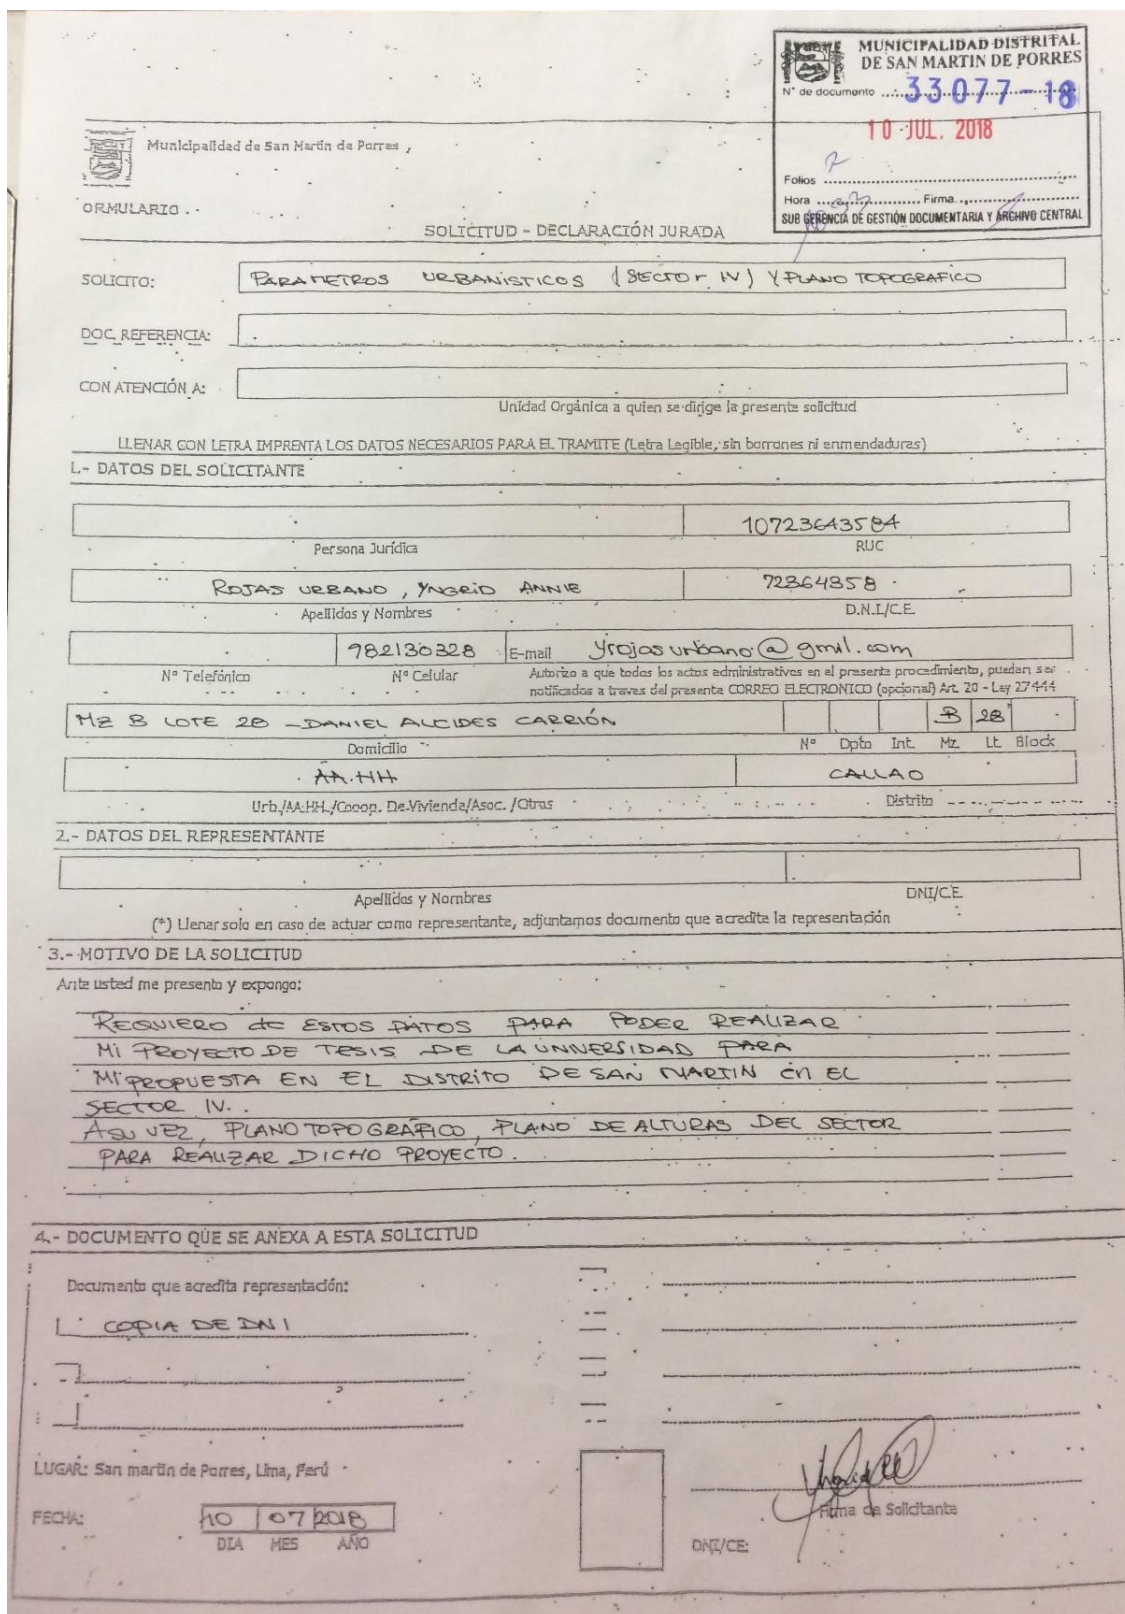 MUNICIPALIDAD DISTRITAL
DE SAN MARTIN DE PORRES
N° de documento ... 33077-18
10 JUL. 2018
Folios 2
Hora ... Firma...
SUB GERENCIA DE GESTIÓN DOCUMENTARIA Y ARCHIVO CENTRAL
Municipalidad de San Martín de Porres
ORMULARIO
SOLICITUD - DECLARACIÓN JURADA
SOLICITO: PARAMETROS URBANISTICOS (SECTOr IV) Y PLANO TOPOGRAFICO
DOC. REFERENCIA:
CON ATENCIÓN A:
Unidad Orgánica a quien se dirige la presente solicitud
LLENAR CON LETRA IMPRENTA LOS DATOS NECESARIOS PARA EL TRAMITE (Letra Legible, sin borrones ni enmendaduras)
1.- DATOS DEL SOLICITANTE
10723643584
Persona Jurídica RUC
ROJAS URBANO, YNGRID ANNIE 72364358
Apellidos y Nombres D.N.I./C.E.
982130328 E-mail yrojasurbano@gmil.com
N° Telefónico N° Celular Autorizo a que todos los actos administrativos en el presente procedimiento, puedan ser
notificados a traves del presente CORREO ELECTRONICO (opcional) Art. 20 - Ley 27444
MZ B LOTE 28 - DANIEL ALCIDES CARRIÓN B 28
Domicilio N° Dpto Int. Mz. Lt. Block
AA.HH CALLAO
Urb./AA.HH./Coop. De Vivienda/Asoc. /Otros Distrito
2.- DATOS DEL REPRESENTANTE
Apellidos y Nombres DNI/CE
(*) Llenar solo en caso de actuar como representante, adjuntamos documento que acredite la representación
3.- MOTIVO DE LA SOLICITUD
Ante usted me presento y expongo:
REQUIERO de ESTOS DATOS PARA PODER REALIZAR
MI PROYECTO DE TESIS DE LA UNIVERSIDAD PARA
MI PROPUESTA EN EL DISTRITO DE SAN MARTIN en EL
SECTOR IV.
A SU VEZ, PLANO TOPOGRÁFICO, PLANO DE ALTURAS DEL SECTOR
PARA REALIZAR DICHO PROYECTO.
4.- DOCUMENTO QUE SE ANEXA A ESTA SOLICITUD
Documento que acredita representación:
COPIA DE DNI
LUGAR: San martin de Porres, Lima, Perú
Firma de Solicitante
FECHA: 10 07 2018
DIA MES AÑO
DNI/CE: